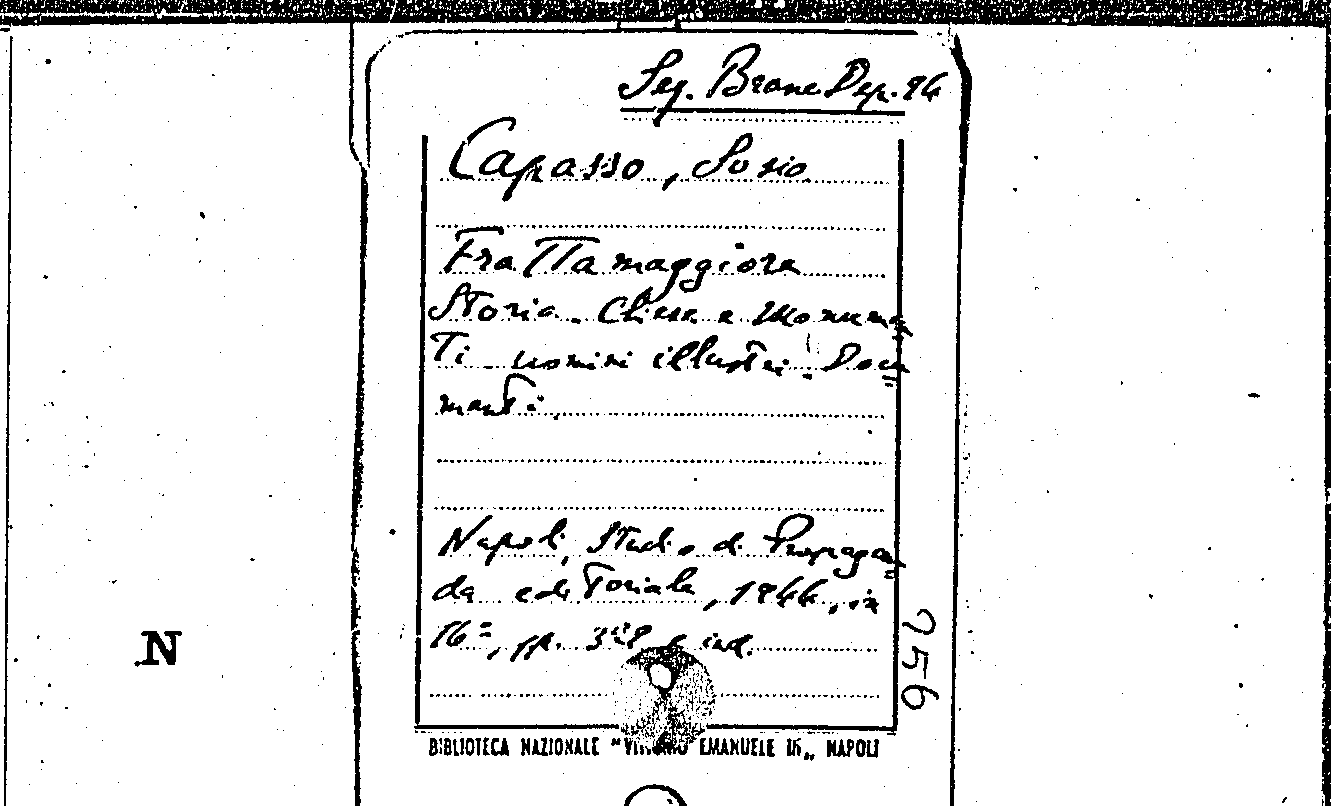 Capasso, Sosio
Frattamaggiore
Storia - Chiese e Monumen
ti - uomini illustri - Docu
menti.
Napoli, Studio di Propagan
da editoriale, 1944, in
16º, pp. e ind.
256
N
BIBLIOTECA NAZIONALE "VITTORIO EMANUELE III„ NAPOLI